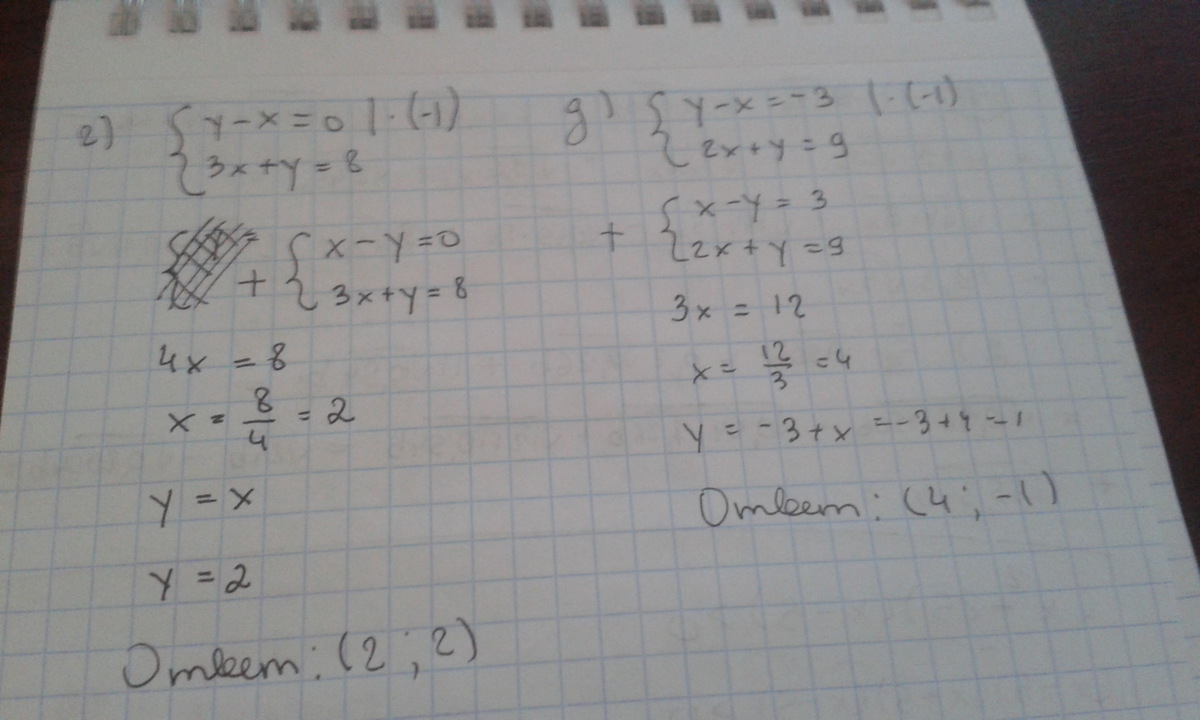 г) { y - x = 0 | · (-1)
3x + y = 8
+ { x - y = 0
3x + y = 8
4x = 8
x = 8/4 = 2
y = x
y = 2
Ответ: (2 ; 2)
g) { y - x = -3 | · (-1)
2x + y = 9
+ { x - y = 3
2x + y = 9
3x = 12
x = 12/3 = 4
y = -3 + x = -3 + 4 = 1
Ответ: (4 ; -1)